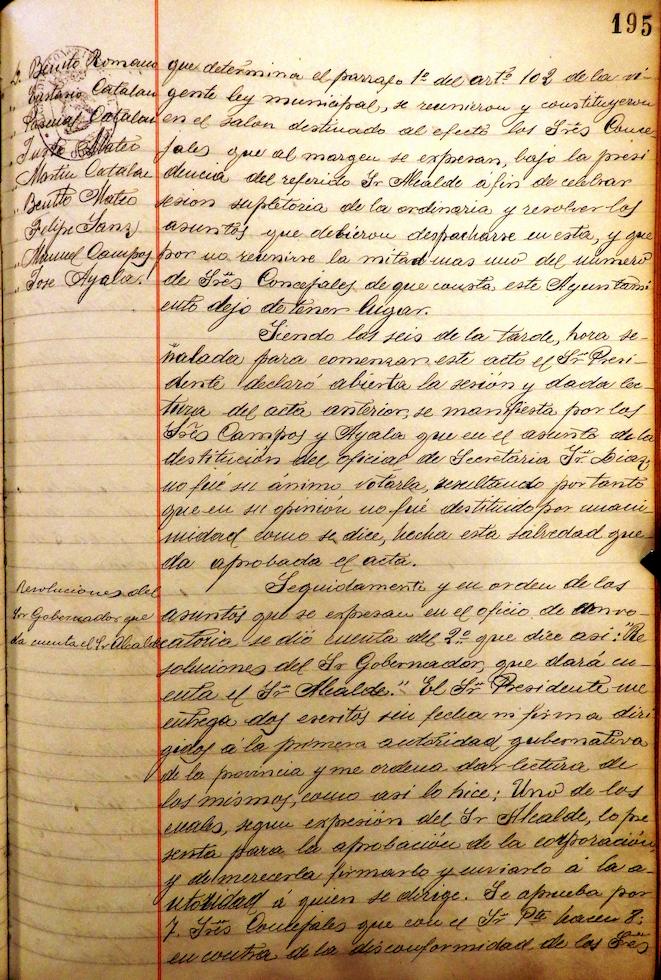 195
D. Benito Romano
" Eustasio Catalan
" Pascual Catalan
" Justo Mateo
" Martin Catalan
" Benito Mateo
" Felipe Sanz
" Manuel Campos
" Jose Ayala.
que determina el parrafo 1º del artº 102 de la vi-
gente ley municipal, se reunieron y constituyeron
en el salon destinado al efecto los Srês Conce-
jales que al margen se expresan, bajo la presi
dencia del referido Sr Alcalde á fin de celebrar
sesion supletoria de la ordinaria y resolver los
asuntos que debieron despacharse en esta, y que
por no reunirse la mitad mas uno del numero
de Srês Concejales de que consta este Ayuntami
ento dejo de tener lugar.
Siendo las seis de la tarde, hora se-
ñalada para comenzar este acto el Sr Presi-
dente declaró abierta la sesión y dada lec-
tura del acta anterior, se manifiesta por los
Srês Campos y Ayala que en el asunto de la
destitución del oficial de Secretaria Sr. Diaz,
no fué su animo votarla, resultando por tanto
que en su opinión no fué destituido por unani
midad como se dice, hecha esta salvedad que-
da aprobada el acta.
Resoluciones del
Sr Gobernador que
da cuenta el Sr Alcalde
Seguidamente y en orden de los
asuntos que se expresan en el oficio de convo-
catoria se dió cuenta del 2º que dice asi: "Re
soluciones del Sr Gobernador, que dará cu-
enta el Sr Alcalde." El Sr Presidente me
entrega dos escritos sin fecha ni firma diri
gidos á la primera autoridad gubernativa
de la provincia y me ordena dar lectura de
los mismos, como asi lo hice; Uno de los
cuales, segun expresión del Sr Alcalde, lo pre
senta para la aprobación de la corporación
y de merecerla firmarlo y enviarlo á la a-
utoridad á quien se dirige. Se aprueba por
7 Srês Concejales que con el Sr Pte hacen 8;
en contra de la disconformidad de los Srês